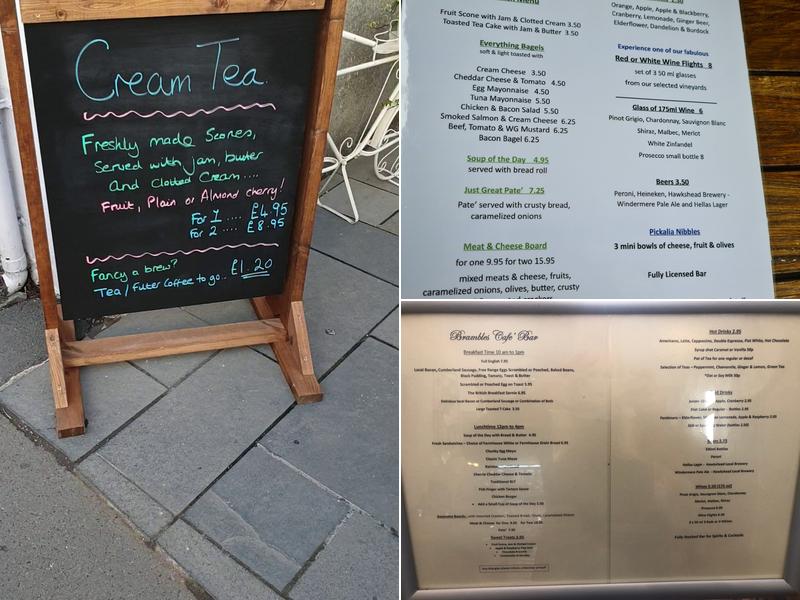 Cream Tea.
Freshly made Scones,
Served with jam, butter
and Clotted Cream ....
Fruit, Plain or Almond cherry!
For 1 .... £4.95
For 2 .... £8.95
Fancy a brew?
Tea / Filter Coffee to go.. £1.20
Menu
Fruit Scone with Jam & Clotted Cream 3.50
Toasted Tea Cake with Jam & Butter 3.50
Everything Bagels
soft & light toasted with
Cream Cheese 3.50
Cheddar Cheese & Tomato 4.50
Egg Mayonnaise 4.50
Tuna Mayonnaise 5.50
Chicken & Bacon Salad 5.50
Smoked Salmon & Cream Cheese 6.25
Beef, Tomato & WG Mustard 6.25
Bacon Bagel 6.25
Soup of the Day 4.95
served with bread roll
Just Great Pate' 7.25
Pate' served with crusty bread,
caramelized onions
Meat & Cheese Board
for one 9.95 for two 15.95
mixed meats & cheese, fruits,
caramelized onions, olives, butter, crusty
Orange, Apple, Apple & Blackberry,
Cranberry, Lemonade, Ginger Beer,
Elderflower, Dandelion & Burdock
Experience one of our fabulous
Red or White Wine Flights 8
set of 3 50 ml glasses
from our selected vineyards
Glass of 175ml Wine 6
Pinot Grigio, Chardonnay, Sauvignon Blanc
Shiraz, Malbec, Merlot
White Zinfandel
Prosecco small bottle 8
Beers 3.50
Peroni, Heineken, Hawkshead Brewery -
Windermere Pale Ale and Hellas Lager
Pickalia Nibbles
3 mini bowls of cheese, fruit & olives
Fully Licensed Bar
Brambles Cafe' Bar
Breakfast Time 10 am to 1pm
Full English 7.95
Local Bacon, Cumberland Sausage, Free Range Eggs Scrambled or Poached, Baked Beans,
Black Pudding, Tomato, Toast & Butter
Scrambled or Poached Egg on Toast 5.95
The British Breakfast Barmie 6.95
Delicious local Bacon or Cumberland Sausage or Combination of Both
Large Toasted T-Cake 3.50
Lunchtime 12pm to 4pm
Soup of the Day with Bread & Butter 4.95
Fresh Sandwiches – Choice of Farmhouse White or Farmhouse Grain Bread 6.95
Chunky Egg Mayo
Classic Tuna Mayo
Cheddar Cheese & Tomato
Traditional BLT
Fish Finger with Tartare Sauce
Chicken Burger
Add a Small Cup of Soup of the Day 2.50
Meat & Cheese for One 9.95 for Two
Pate' 7.95
Sweet Treats 3.95
Hot Drinks 2.95
Americano, Latte, Cappuccino, Double Espresso, Flat White, Hot Chocolate
Syrup shot Caramel or Vanilla 50p
Pot of Tea for one regular or decaf
Selection of Teas – Peppermint, Chamomile, Ginger & Lemon, Green Tea
*Oat or Soy Milk 50p
Apple, Cranberry 2.95
Beers 3.75
Peroni
Hellas Lager – Hawkshead Local Brewery
Windermere Pale Ale – Hawkshead Local Brewery
Pinot Grigio, Sauvignon Blanc, Chardonnay
Fully Stocked Bar for Spirits & Cocktails